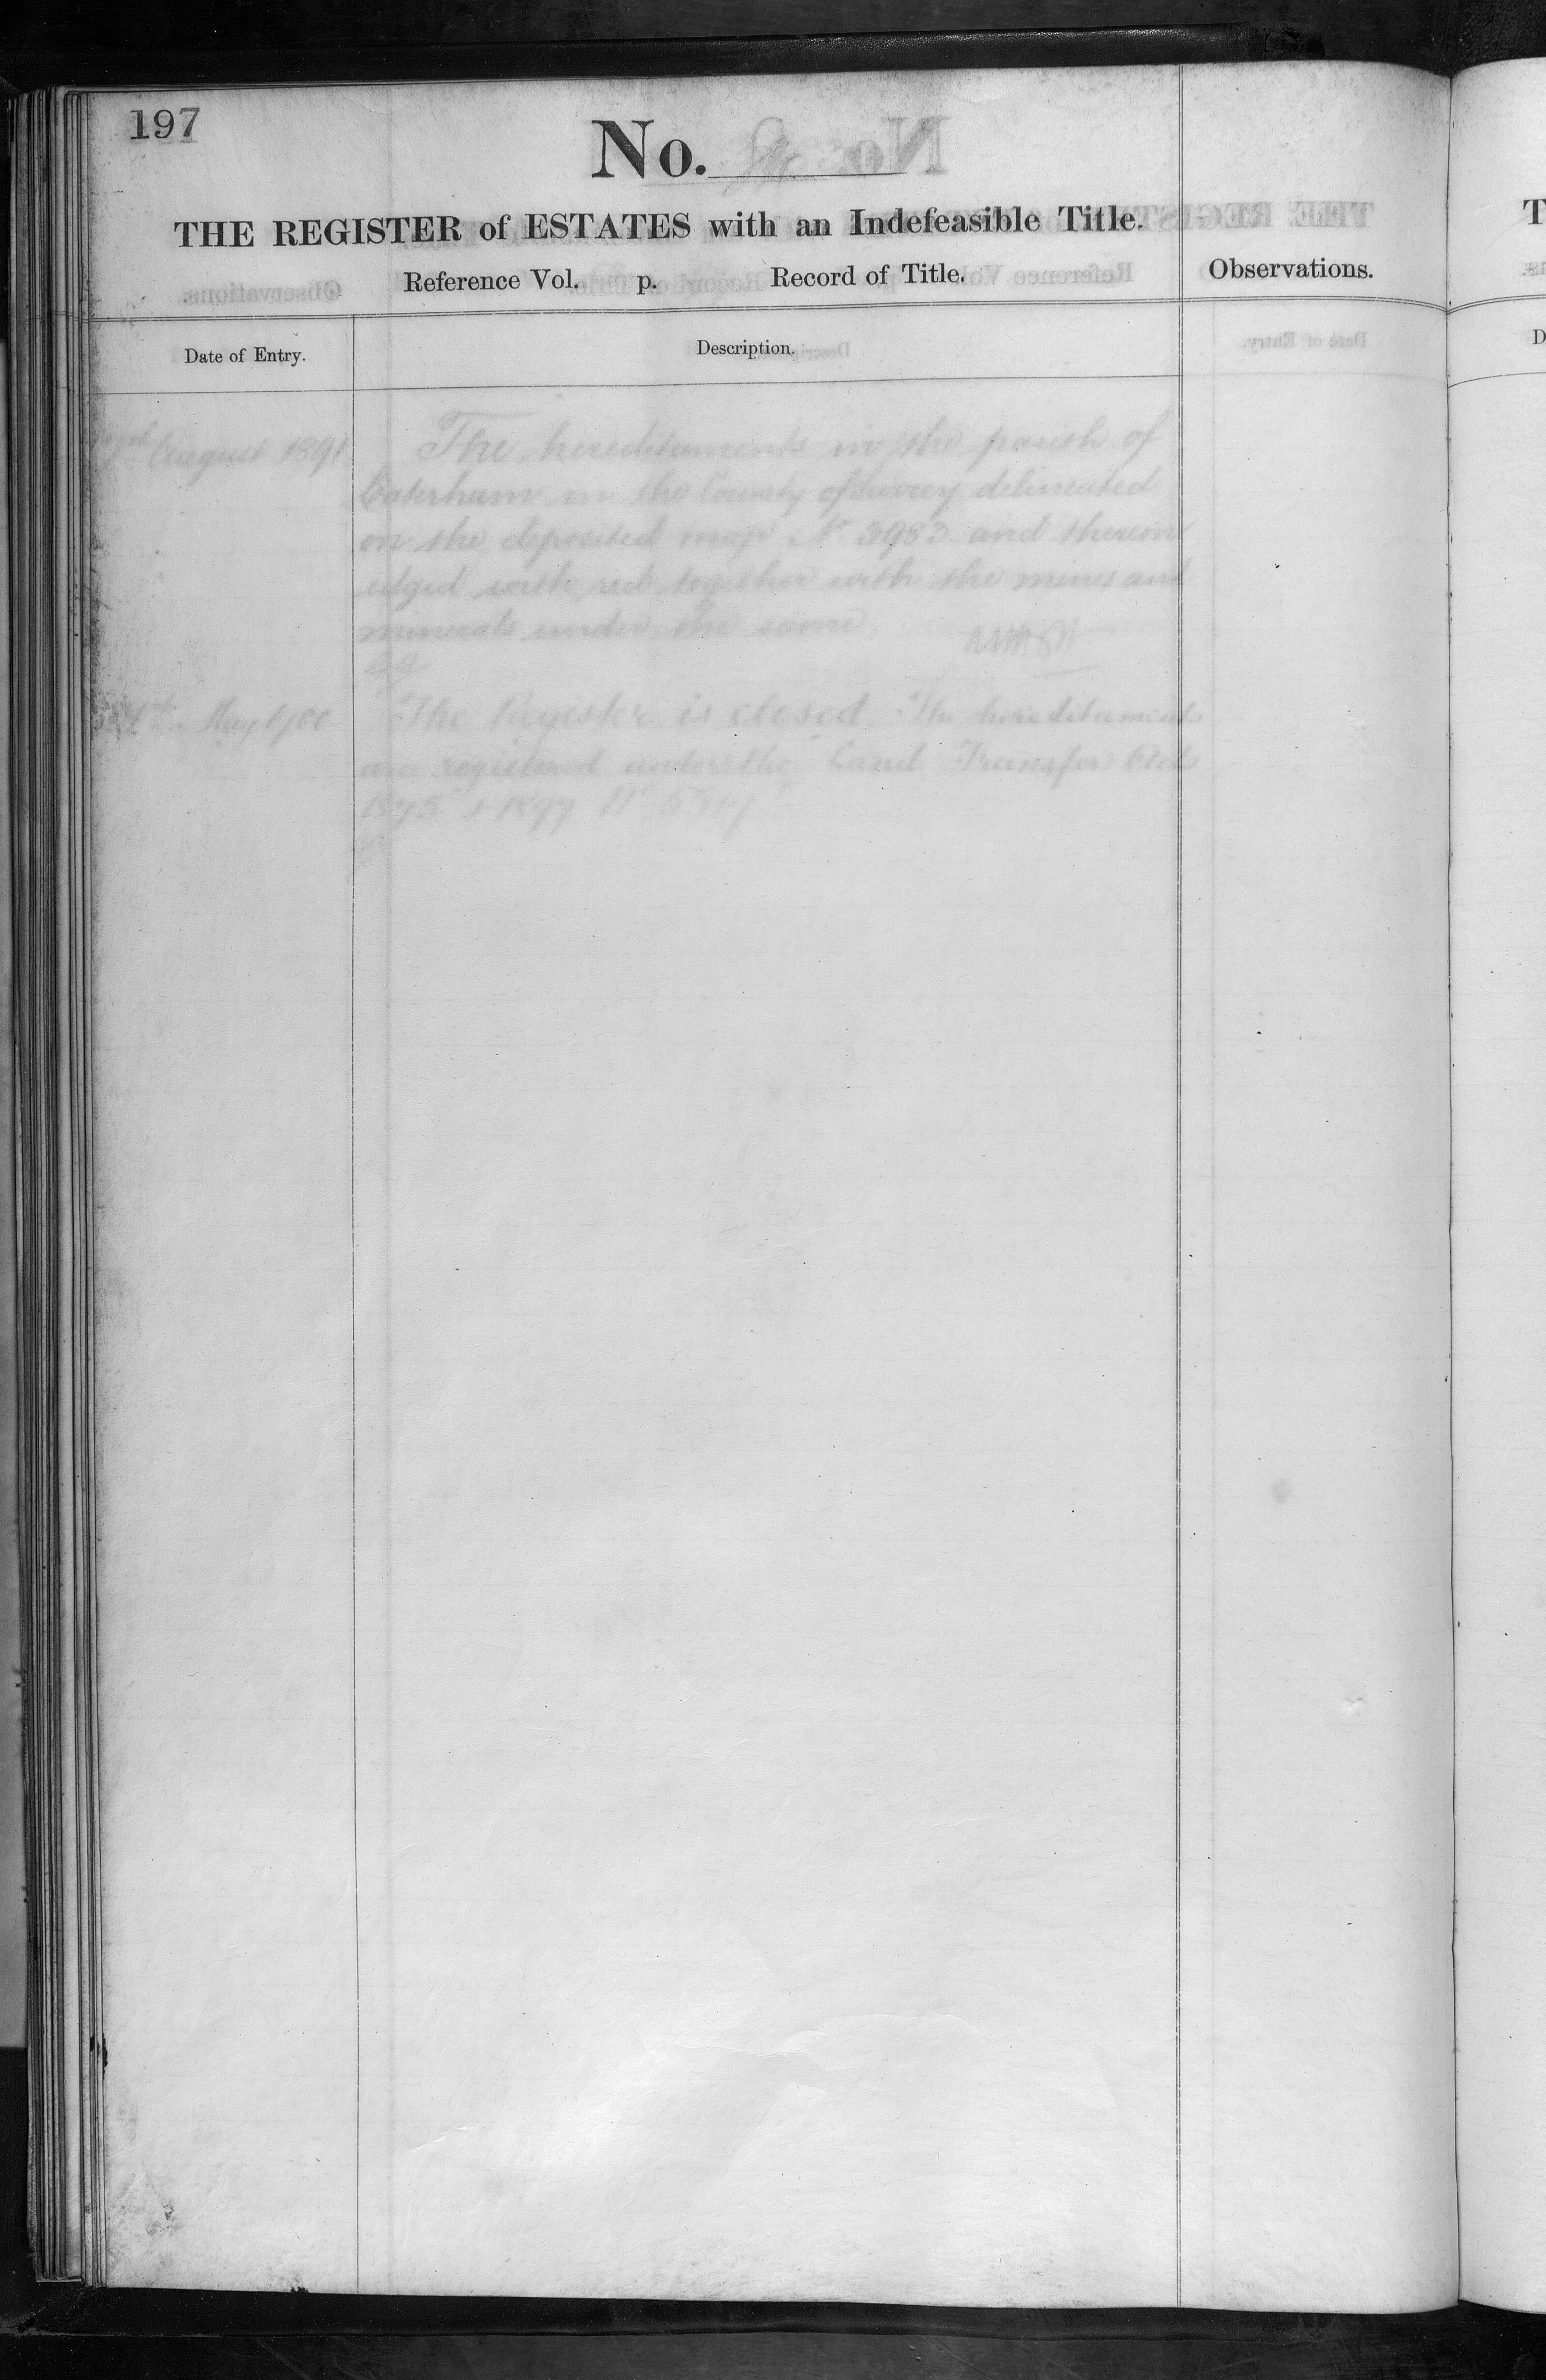 197
No.
THE REGISTER of ESTATES with an Indefeasible Title.
Reference Vol. p. Record of Title.
Observations.
Date of Entry.
Description.
August 1891
The hereditaments in the parish of
Caterham in the County of Surrey delineated
on the deposited map No 3983 and thereon
edged with red together with the mines and
minerals under the same
May 1900
The Register is closed. The hereditaments
are registered under the Land Transfer Acts
1875 & 1897 No